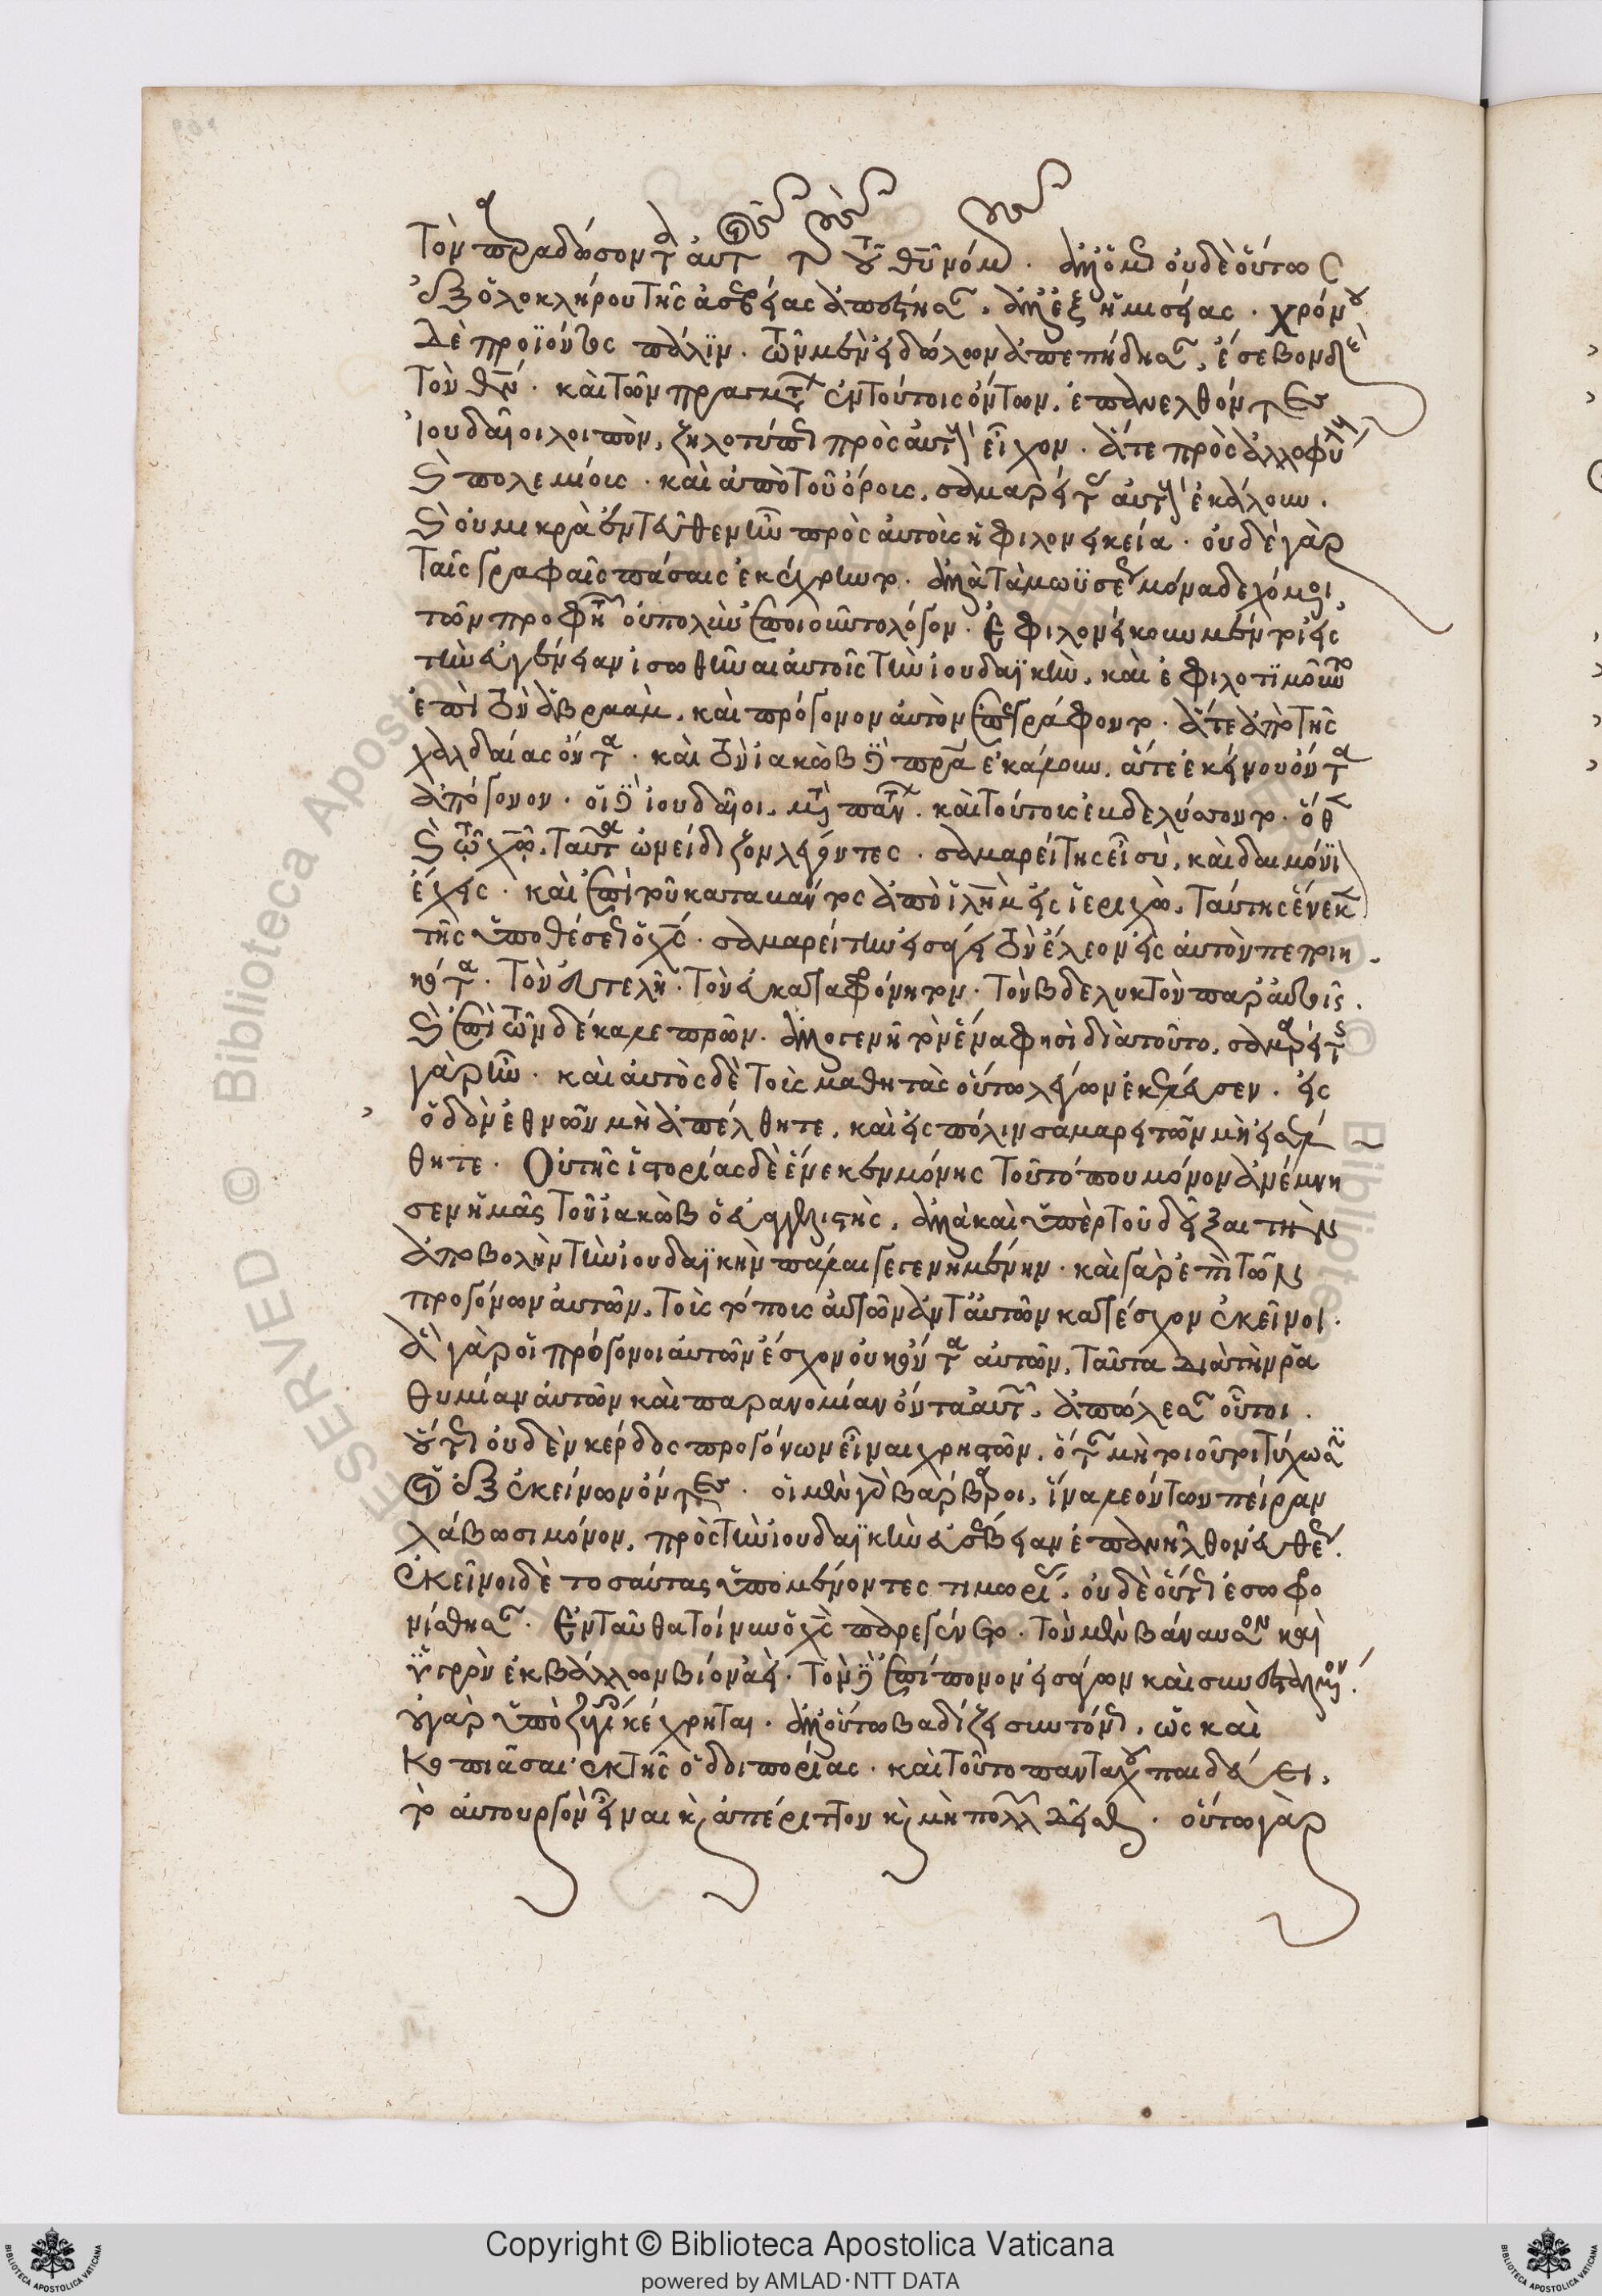 τὸν παραδώσοντα αὐτοῖς τοὺς τοῦ θυ νόμους. ἀλλ' ὅμως οὐδὲ οὕτως
ἐξ ὁλοκλήρου τῆς ἀσεβείας ἀπέστησαν, ἀλλ' ἐξ ἡμισείας. χρόνου
δὲ προϊόντος πάλιν. τῶν μὲν εἰδώλων ἀπεπήδησαν, ἐσέβον δὲ
τὸν θν. καὶ τῶν πραγμάτων ἐν τούτοις ὄντων, ἐπανελθόντες
ἰουδαῖοι λοιπὸν, ζηλοτύπως πρὸς αὐτοὺς εἶχον. ἅτε πρὸς ἀλλοφύλους
καὶ πολεμίοις. καὶ ἀπὸ τοῦ ὄροις, σαμαρείτας αὐτοὺς ἐκάλουν.
καὶ οὐ μικρὰ ἐντεῦθεν ἦν πρὸς αὐτοὺς ἡ φιλονεικεία. οὐδὲ γὰρ
ταῖς γραφαῖς πάσαις ἐκέχρηντο. ἀλλὰ τὰ μωϋσέως μόνα δεχόμενοι,
τῶν προφητῶν οὐ πολὺν ἐποιοῦντο λόγον. ἐφιλονείκουν μέντοι εἰς
τὴν εὐγένειαν εἰσωθῆναι αὐτοῖς τὴν ἰουδαϊκὴν. καὶ ἐφιλοτιμοῦντο
ἐπὶ τὸν ἀβραάμ. καὶ πρόγονον αὐτὸν ἐπεγράφοντο. ἅτε ἀπὸ τῆς
χαλδαίας ὄντα. καὶ τὸν ἰακὼβ δὲ πρα ἐκάλουν, ἅτε ἐκείνου ὄντα
ἀπόγονον. οἱ δὲ ἰουδαῖοι, μετὰ πάντων. καὶ τούτους ἐβδελύσσοντο. ὅθεν
καὶ τῷ χῷ, ταῦτα ὠνείδιζον λέγοντες. σαμαρείτης εἶ σὺ, καὶ δαιμόνιον
ἔχεις. καὶ ἐπὶ τοῦ καταβάντος ἀπὸ ἱλημ εἰς ἱεριχὼ, ταύτης ἕνεκεν
τῆς ὑποθέσεως ὁ χς. σαμαρείτην εἰσάγει τὸν ἔλεον εἰς αὐτὸν πεποιη
κότα. τὸν εὐτελῆ. τὸν εὐκαταφρόνητον. τὸν βδελυκτὸν παρ' αὐτοῖς.
καὶ ἐπὶ τῶν δέκα λεπρῶν. ἀλλογενῆ τὸν ἕνα φησὶ διὰ τοῦτο, σαμαρείτης
γὰρ ἦν. καὶ αὐτὸς δὲ τοῖς μαθητὰς οὕτω λέγων ἐκέλευσεν. εἰς
ὁδὸν ἐθνῶν μὴ ἀπέλθητε, καὶ εἰς πόλιν σαμαρειτῶν μὴ εἰσέλ
θητε. Οὐ τῆς ἱστορίας δὲ ἕνεκεν μόνης τοῦ τόπου μόνον ἀνέμνη
σεν ἡμᾶς τοῦ ἰακὼβ ὁ εὐαγγελιστὴς, ἀλλὰ καὶ ὑπὲρ τοῦ δεῖξαι τὴν
ἀποβολὴν τὴν ἰουδαϊκὴν πάλαι γεγενημένην. καὶ γὰρ ἐπὶ τῶν
προγόνων αὐτῶν, τοὺς τόπους αὐτῶν ἀντ' αὐτῶν κατέσχον ἐκεῖνοι.
ἃ γὰρ οἱ πρόγονοι αὐτῶν ἔσχον οὐκ ὄντα αὐτῶν, ταῦτα διὰ τὴν ῥᾳ
θυμίαν αὐτῶν καὶ παρανομίαν ὄντα αὐτῶν, ἀπώλεσαν οὗτοι.
οὕτως οὐδὲν κέρδος προγόνων εἶναι χρηστῶν, ὅταν μὴ τοιοῦτοι τύχωσιν
οἱ ἐξ ἐκείνων ὄντες. οἱ μὲν γὰρ βάρβαροι, ἵνα λεόντων πεῖραν
λάβωσι μόνον, πρὸς τὴν ἰουδαϊκὴν εὐσέβειαν ἐπανῆλθον εὐθέως.
ἐκεῖνοι δὲ τοσαύτας ὑπομένοντες τιμωρίας, οὐδὲ οὕτως ἐσωφρο
νίσθησαν. Ἐνταῦθα τοίνυν ὁ χς παρεγένετο. τὸν μὲν βάναυσον καὶ
ὑγρὸν ἐκβάλλων βίον ἀεὶ. τὸν δὲ ἐπίπονον εἰσάγων καὶ συνεσταλμένον.
οὐ γὰρ ὑποζυγίοις κέχρηται. ἀλλ' οὕτω βαδίζει συντόνως, ὡς καὶ
κοπιᾶσαι ἐκ τῆς ὁδοιπορίας. καὶ τοῦτο πανταχοῦ παιδεύει,
τὸ αὐτουργὸν εἶναι καὶ ἀπέριττον καὶ μὴ πολλῶν δεῖσθαι. οὕτω γὰρ